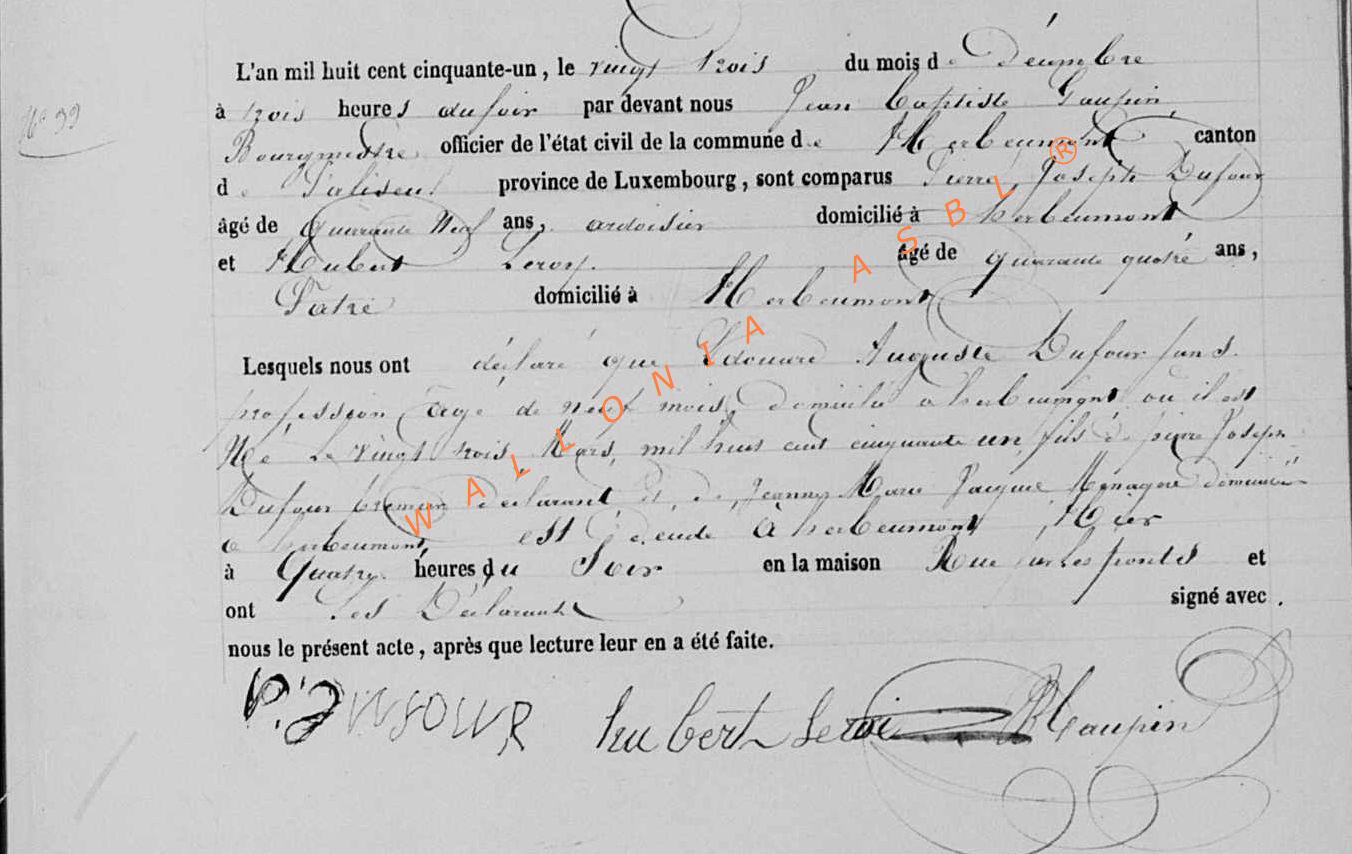 N° 39
L'an mil huit cent cinquante-un, le vingt trois du mois de Décembre
à trois heures du soir par devant nous Jean Baptiste Gaupin
Bourgmestre officier de l'état civil de la commune de Herbeumont canton
de Paliseul province de Luxembourg, sont comparus Pierre Joseph Dufour
âgé de quarante Neuf ans, ardoisier domicilié à herbeumont
et Hubert Leroy. âgé de quarante quatre ans,
Patre domicilié à Herbeumont
Lesquels nous ont déclaré que Edouard Auguste Dufour sans
profession âgé de neuf mois, domicilié a herbeumont où il est
Né Le vingt trois Mars, mil huit cent cinquante un, fils de pierre Joseph
Dufour premier declarant et de Jeanne Marie Jacque Menagere domiciliés
a herbeumont, est décédé à herbeumont Hier
à Quatre heures du Soir en la maison Rue sur les ponts et
ont Les Déclarants signé avec.
nous le présent acte, après que lecture leur en a été faite.
P. J DUFOUR hubert Leroi JB Gaupin
WALLONIA ASBL ®